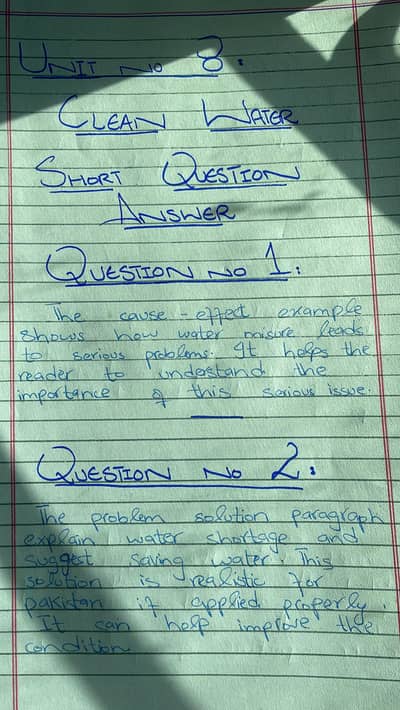 UNIT NO 8.
CLEAN WATER
SHORT QUESTION
ANSWER
QUESTION NO 1.
The cause-effect example
shows how water misure leads
to serious problems. It helps the
reader to understand the
importance of this serious issue.
QUESTION NO 2.
The problem solution paragraph
explain water shortage and
suggest saving water. This
solution is realistic for
pakistan if applied properly.
It can help improve the
condition